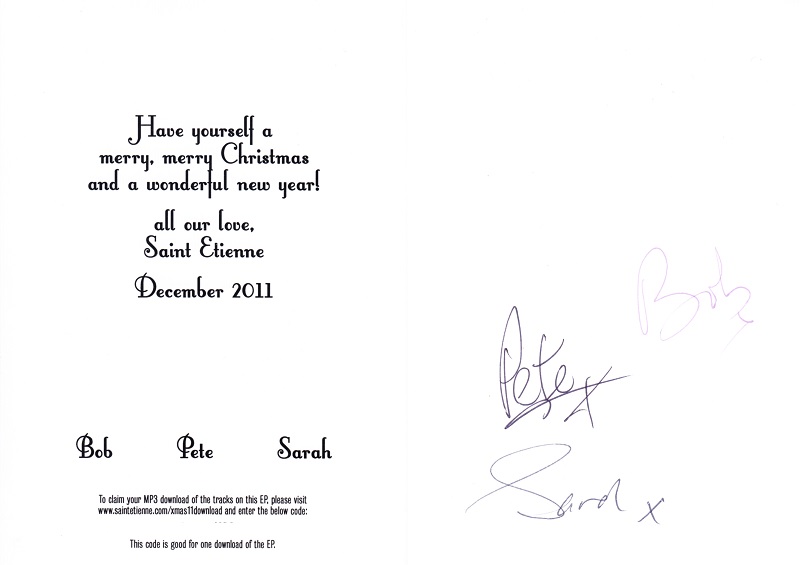 Have yourself a
merry, merry Christmas
and a wonderful new year!
all our love,
Saint Etienne
December 2011
Bob Pete Sarah
To claim your MP3 download of the tracks on this EP, please visit
www.saintetienne.com/xmas11download and enter the below code:
This code is good for one download of the EP.
Bob x
Pete x
Sarah x